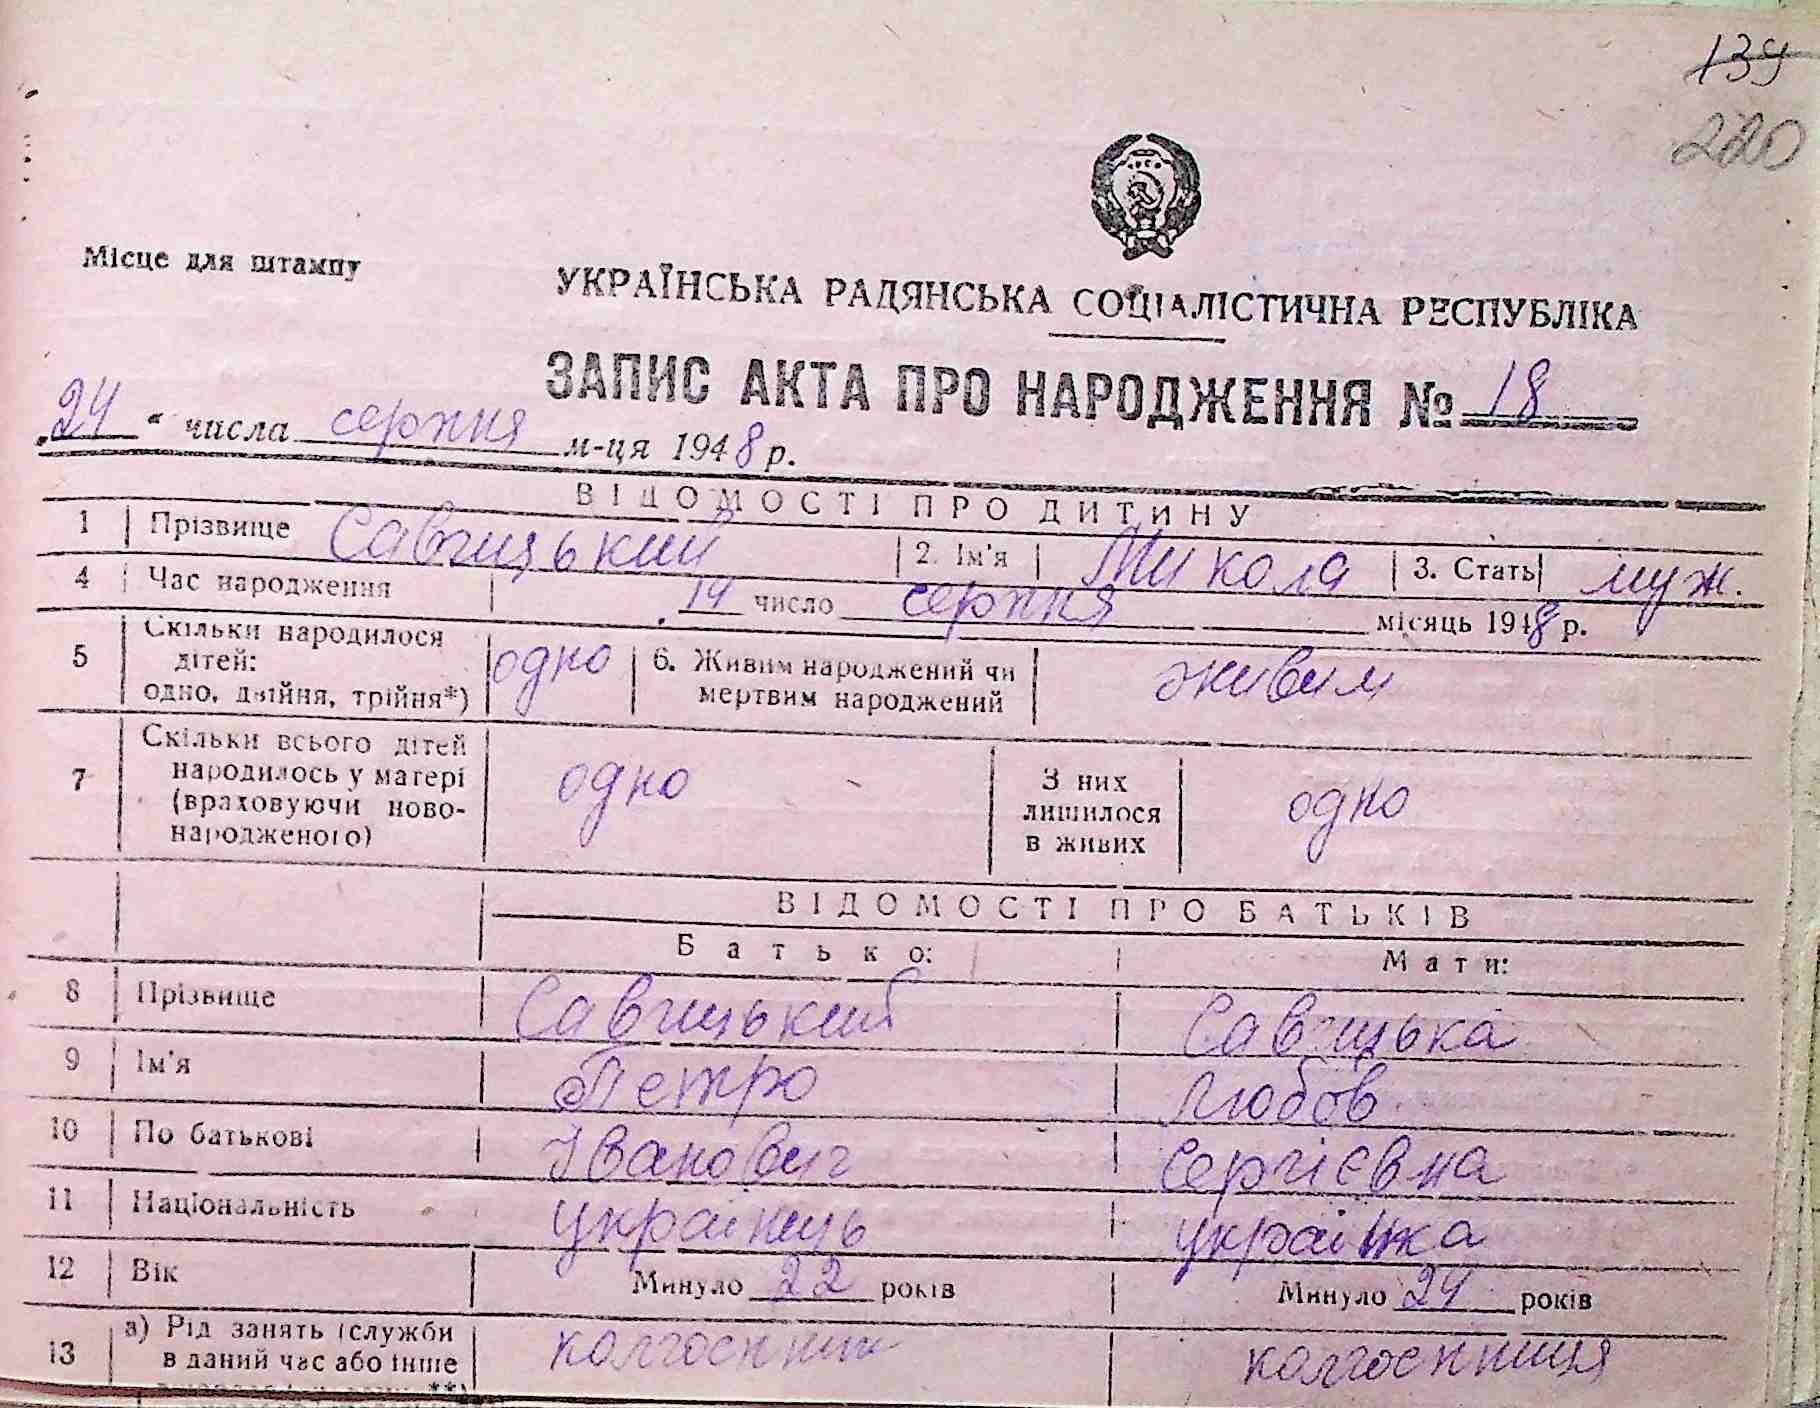 139
220
Місце для штампу
УКРАЇНСЬКА РАДЯНСЬКА СОЦІАЛІСТИЧНА РЕСПУБЛІКА
ЗАПИС АКТА ПРО НАРОДЖЕННЯ № 18
„24“ числа серпня м-ця 1948 р.
ВІДОМОСТІ ПРО ДИТИНУ
1 Прізвище Савчицький 2. Ім'я Микола 3. Стать муж.
4 Час народження 14 число серпня місяць 1948 р.
5 Скільки народилося дітей: одно, двійня, трійня*) одно 6. Живим народжений чи мертвим народжений живим
7 Скільки всього дітей народилось у матері (враховуючи ново-народженого) одно З них лишилося в живих одно
ВІДОМОСТІ ПРО БАТЬКІВ
Батько: Мати:
8 Прізвище Савчицький Савчицька
9 Ім'я Петро Любов
10 По батькові Іванович Сергієвна
11 Національність українець українка
12 Вік Минуло 22 років Минуло 24 років
13 а) Рід занять (служби в даний час або інше колгоспник колгоспниця